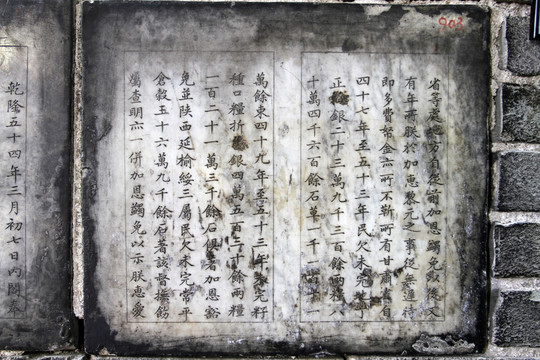 903
省等處地方自從前加恩蠲免以後又
有年所朕於加惠黎元之事從無遲待
即多費帑金亦所不靳所有甘肅省自
四十七年至五十三年民欠未完
正銀二十三萬九千三百餘兩糧八
十萬四千六百餘石草一千一百十一
萬餘束四十九年至五十三年未完籽
種口糧折色銀四萬五百二十餘兩糧
一百二十一萬三千餘石俱著加恩豁
免並陝西延榆綏三屬民欠未完常平
倉穀五十六萬九千餘石著該督撫飭
屬查明亦一併加恩蠲免以示朕惠愛
乾隆五十四年三月初七日內閣奉